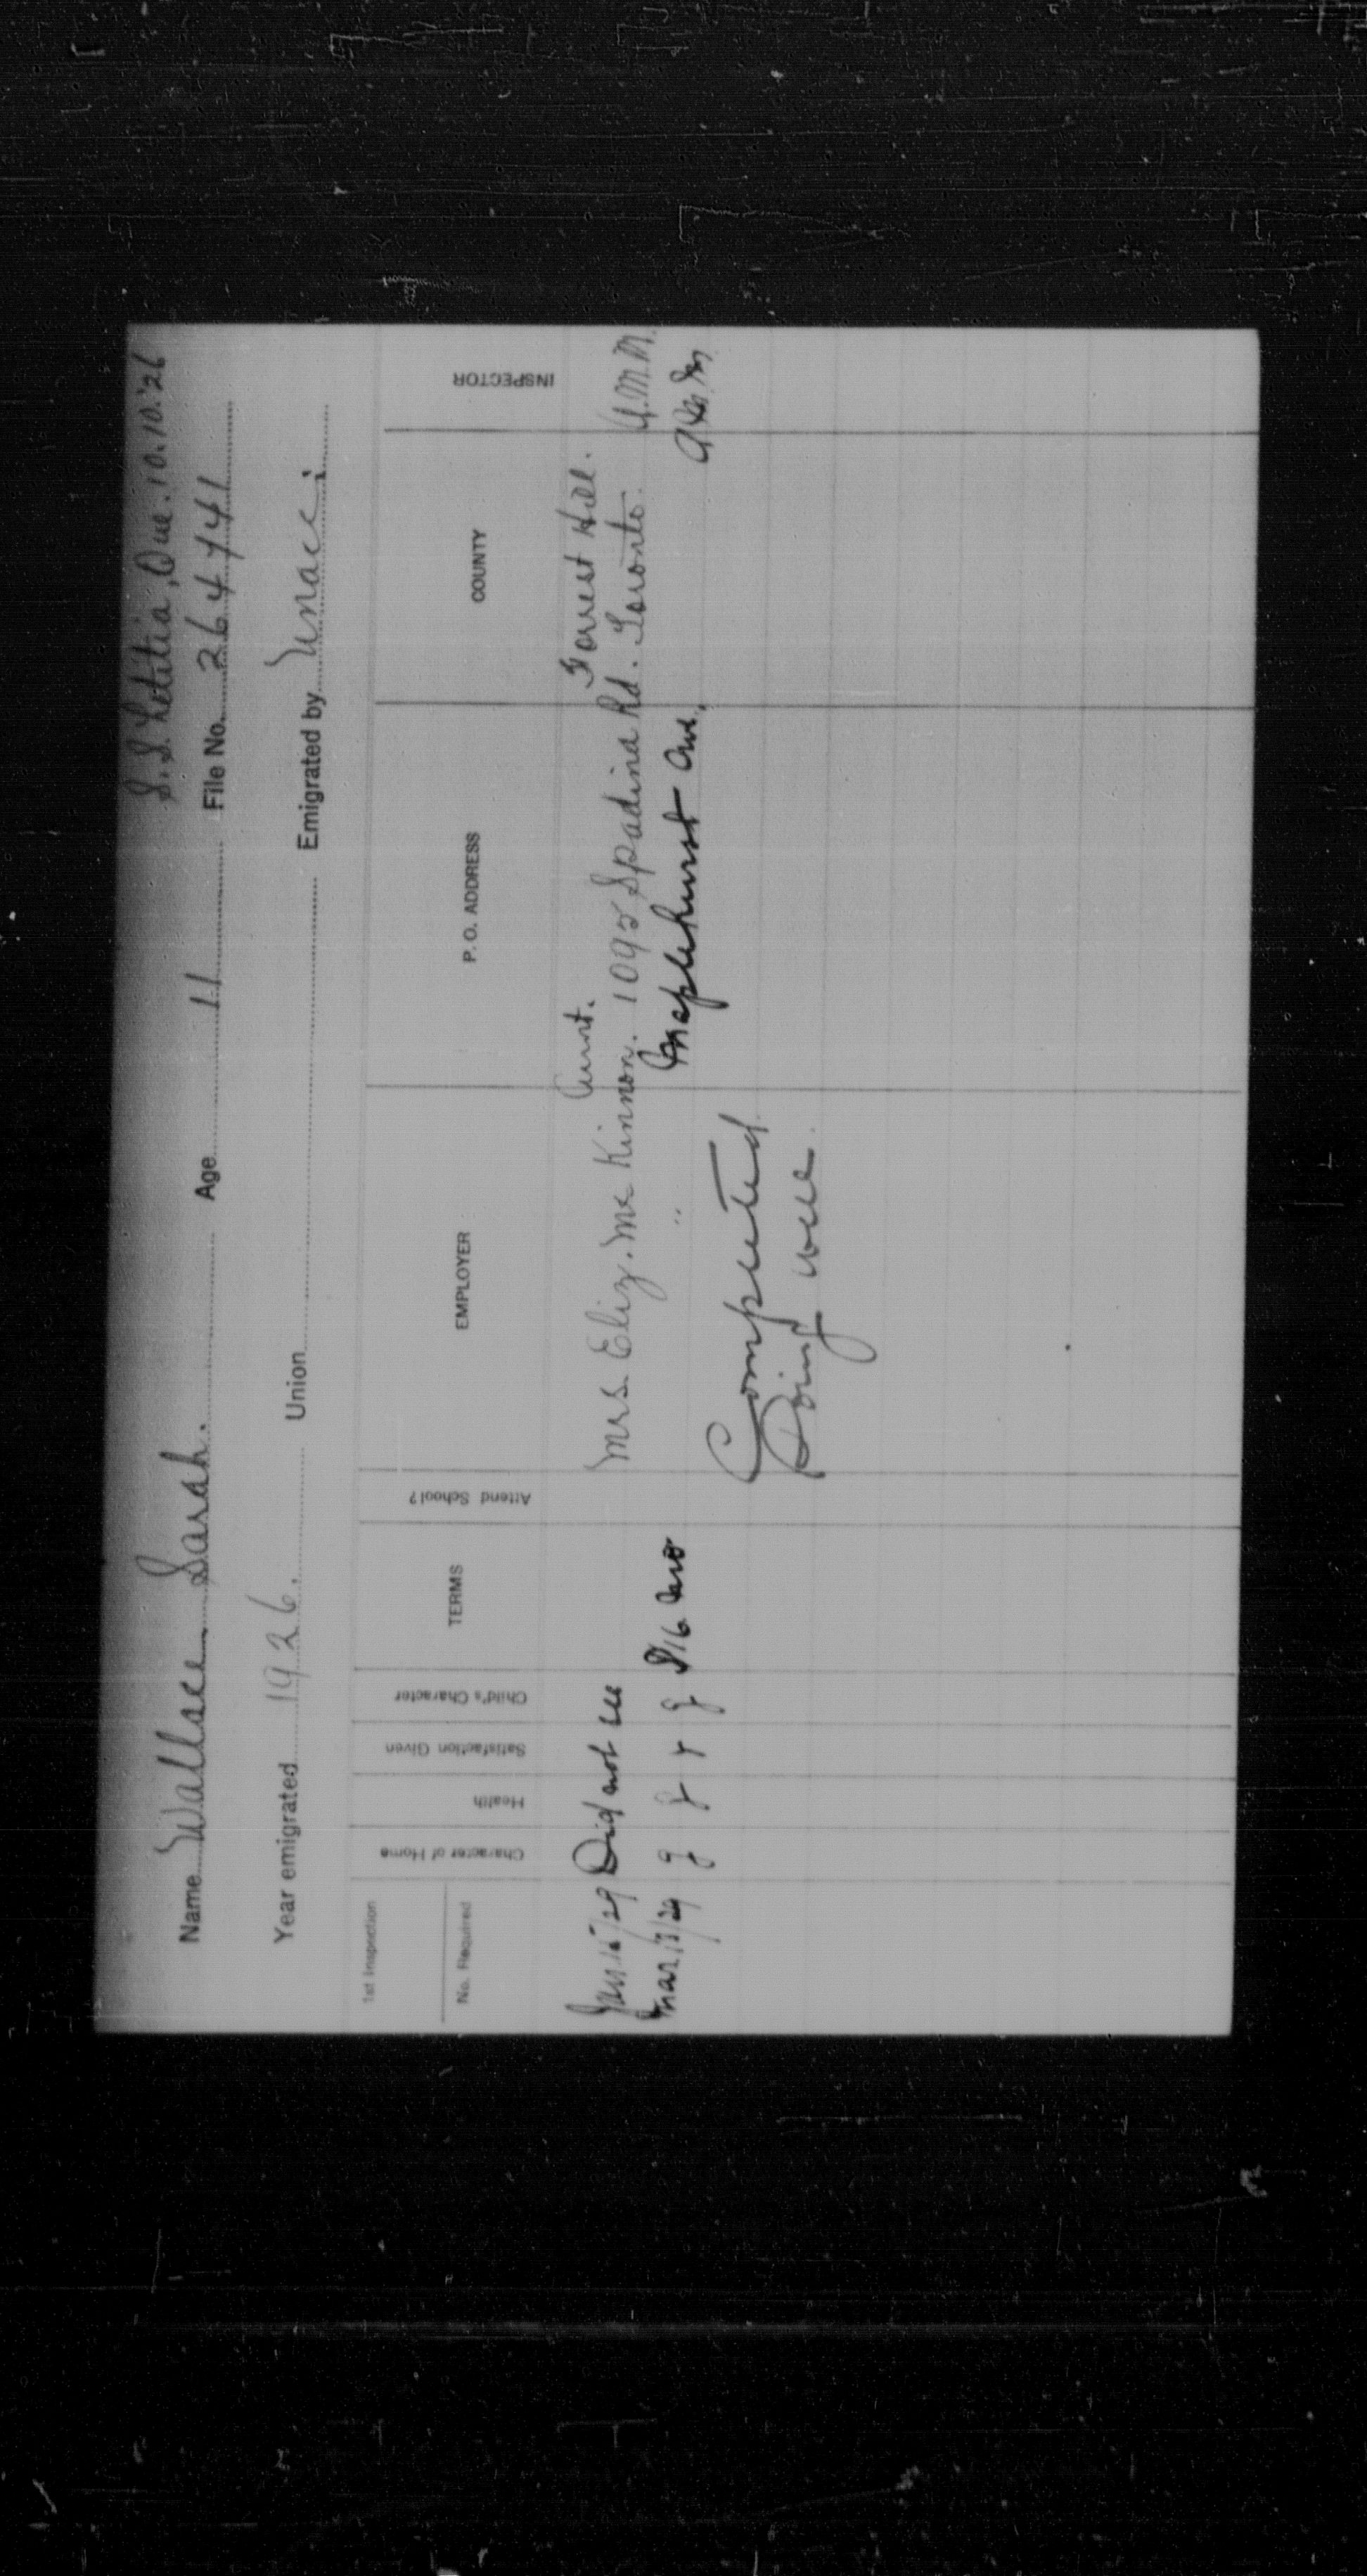 S.S. Letitia, Que. 10.10.'26
Name Wallace Sarah. Age 11 File No. 264441
Year emigrated 1926. Union Emigrated by Unacc;
1st Inspection
No. Required
Character of Home Health Satisfaction Given Child's Character TERMS Attend School? EMPLOYER P. O. ADDRESS COUNTY INSPECTOR
Aunt. Forrest Hill.
Jan 15/29 Did not see Mrs. Eliz. McKinnon. 1092 Spadina Rd. Toronto. A.M.M.
Mar 13/29 g g r g $16 Maplehurst Ave.,
Completed
Doing well.